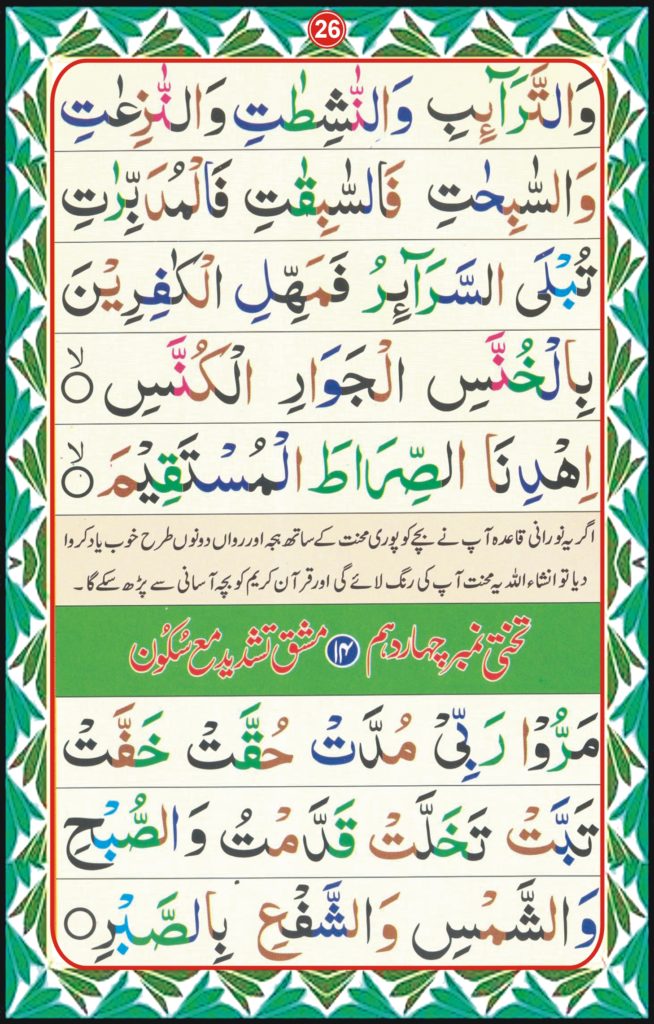 26
وَالتَّرَآئِبِ وَالنّٰشِطٰتِ وَالنّٰزِعٰتِ
وَالسّٰبِحٰتِ فَالسّٰبِقٰتِ فَالْمُدَبِّرٰتِ
تُبْلَى السَّرَآئِرُ فَمَهِّلِ الْكٰفِرِيْنَ
بِالْخُنَّسِ الْجَوَارِ الْكُنَّسِ ○ لا
اِهْدِنَا الصِّرَاطَ الْمُسْتَقِيْمَ ○ لا
اگر یہ نورانی قاعدہ آپ نے بچے کو پوری محنت کے ساتھ ہجہ اور رواں دونوں طرح خوب یاد کروا
دیا تو انشاء اللہ یہ محنت آپ کی رنگ لائے گی اور قرآن کریم کو بچہ آسانی سے پڑھ سکے گا ۔
تختی نمبر چہاردہم ۱۴ مشق تشدید مع سُکُون
مَرُّوْا رَبِّىْ مُدَّتْ حُقَّتْ خَفَّتْ
تَبَّتْ تَخَلَّتْ قَدَّمْتُ وَالصُّبْحِ
وَالشَّمْسِ وَالشَّفْعِ بِالصَّبْرِ ○